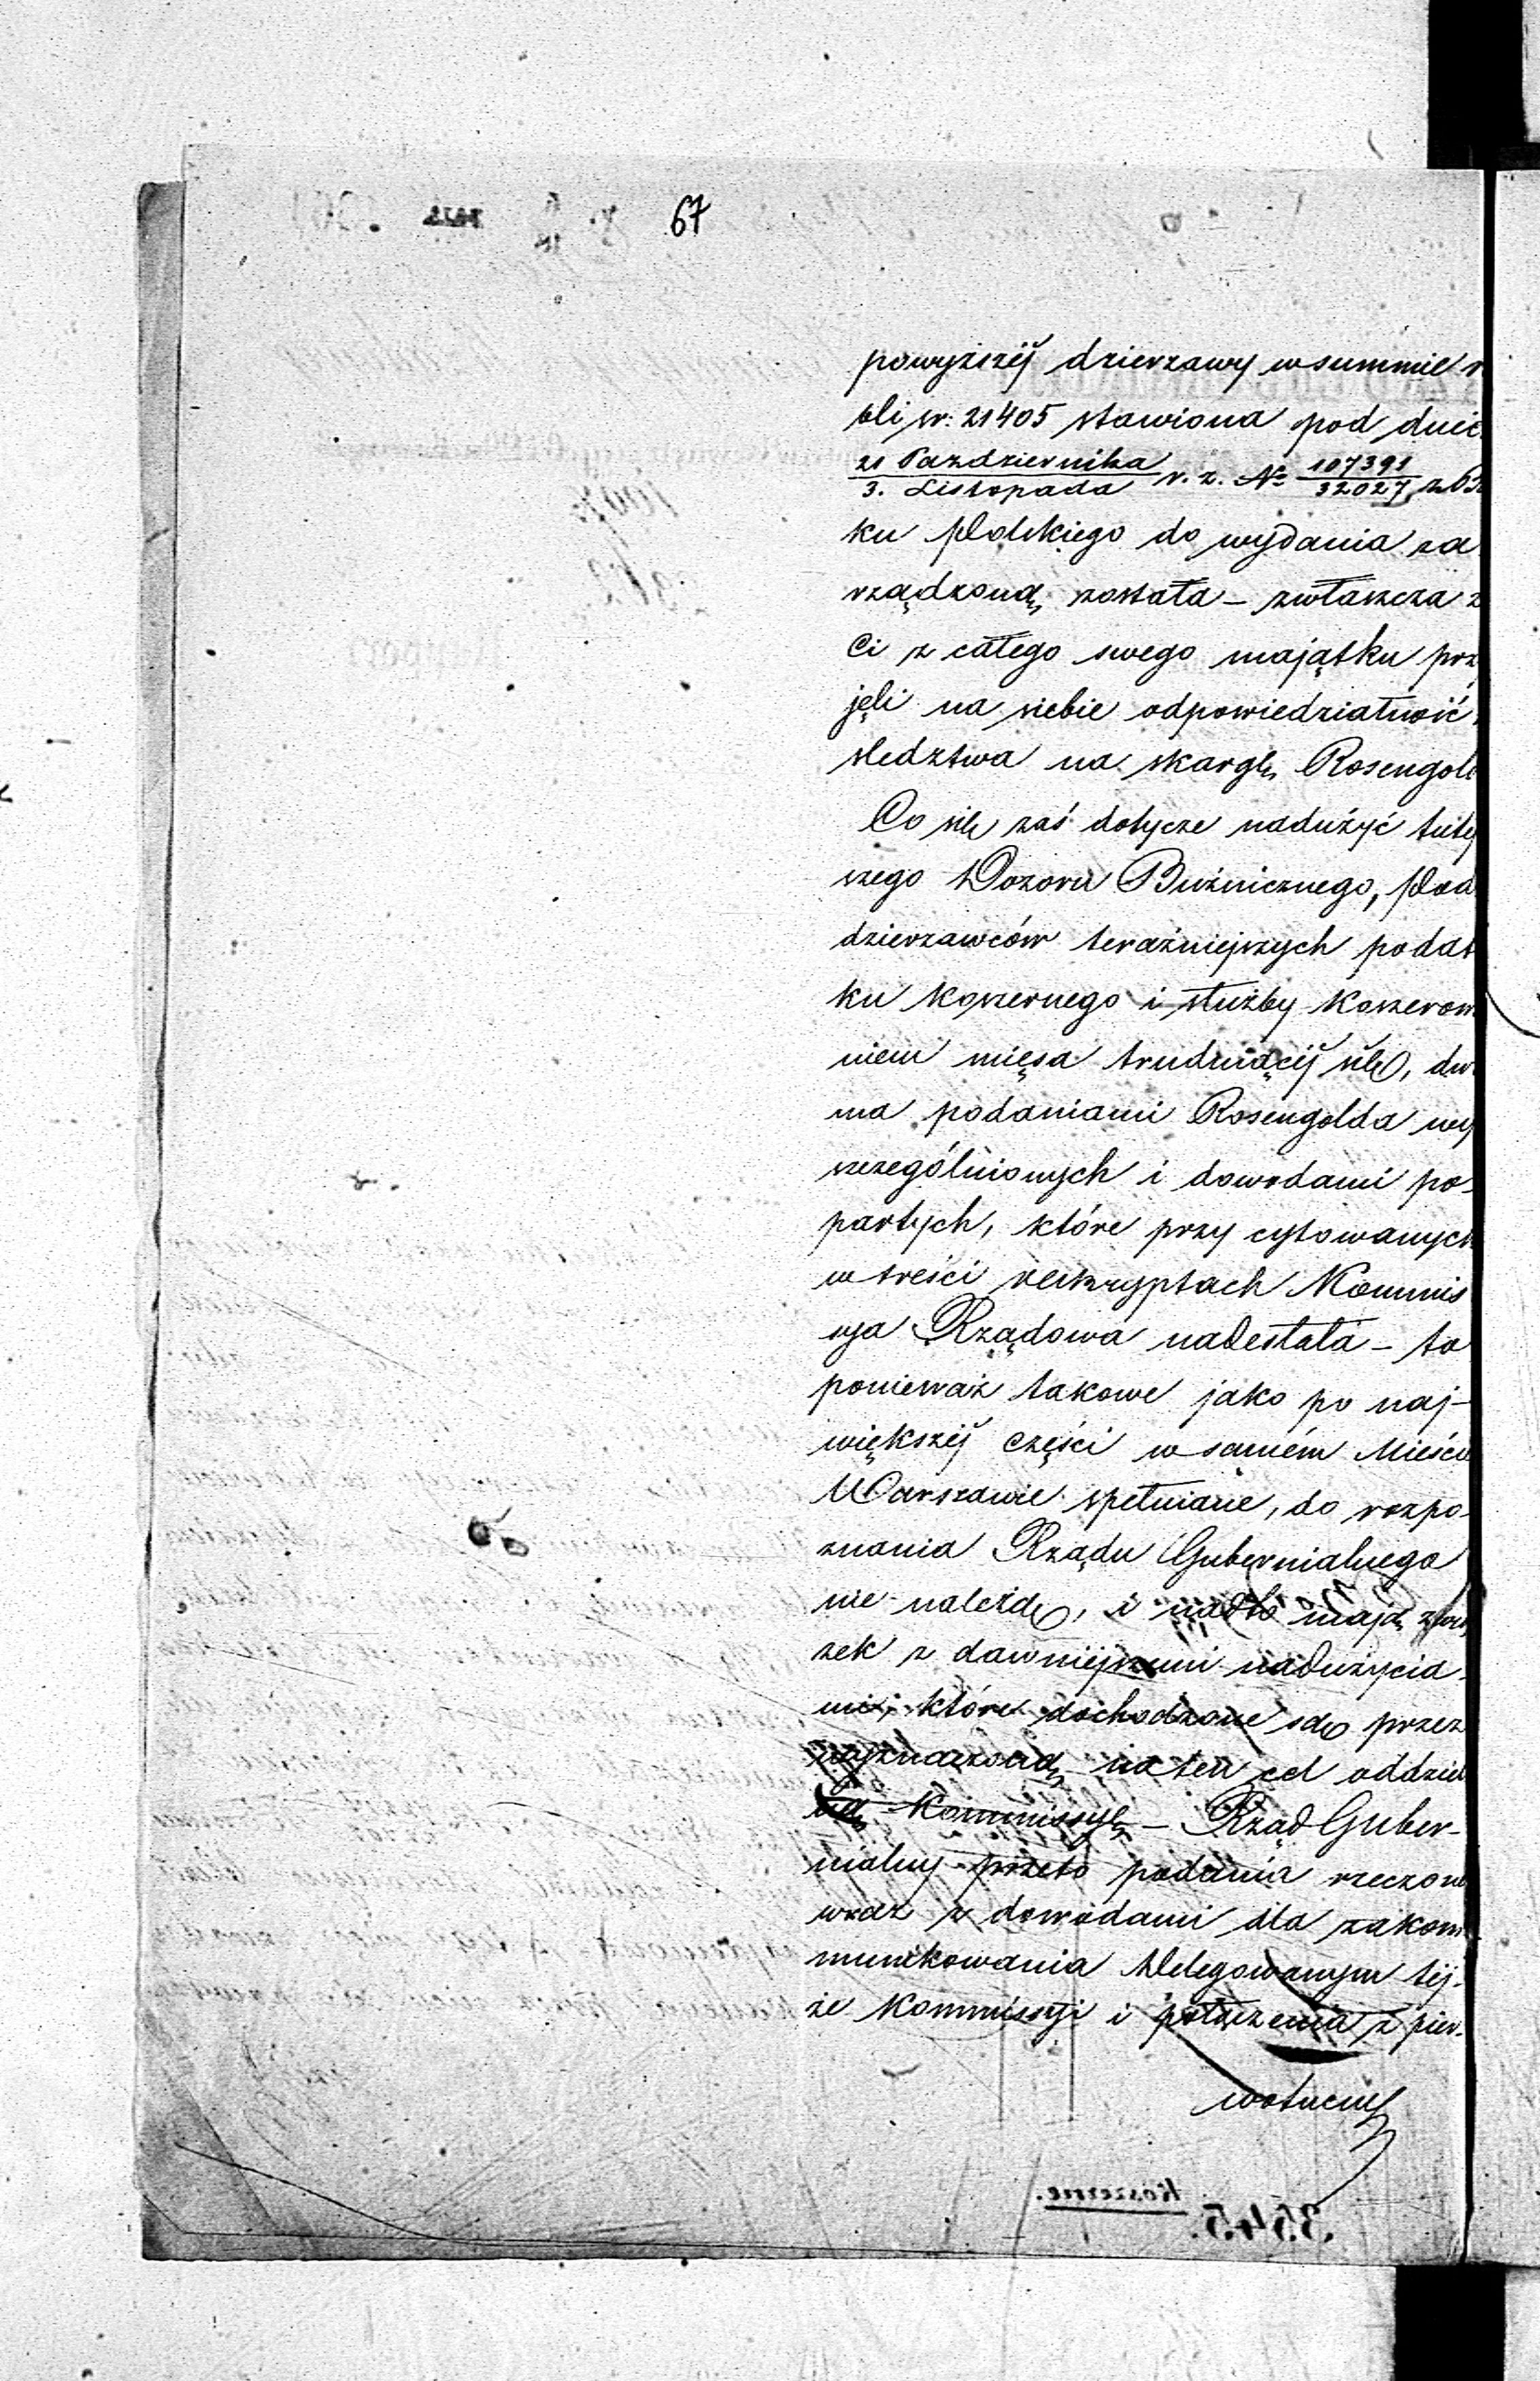 67
powyższéj dzierżawy w summie r
bli sr: 21405 stawiona pod dnie
21 Października / 3. Listopada r. z. № 107391 / 32027 z Ba
ku Polskiego do wydania za
rządzoną została – zwłaszcza ż
Ci z całego swego majątku przy
jęli na siebie odpowiedzialność
śledztwa na skargę Rosengol
Co się zaś dotycze nadużyć tutej
szego Dozoru Bużniczego, Pod
dzierżawców teraźniejszych podat
ku koszernego i służby koszerow
niem mięsa trudniącéj się, dw
ma podaniami Rosengolda wy
szczególnionych i dowodami po-
partych, które przy cytowanych
w treści reskryptach Kommis
syja Rządowa nadesłała – to
ponieważ takowe jako po naj-
większéj części w samém Mieście
Warszawie spełniane, do rozpo-
znania Rządu Gubernialnego
nie należą, i nadto mają zwią
zek z dawniejszemi nadużycia-
mi, które dochodzone są przez
wyznaczoną na ten cel oddziel
ną Kommissyę – Rząd Guber-
nialny przeto podania rzeczone
wraz z dowodami dla zakom
munikowania Delegowanym téj-
że Kommissyi i połączenia z pier-
wotnemi
Koszerne.
3545.